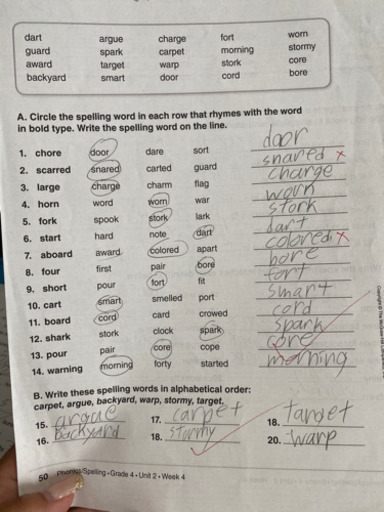 dart argue charge fort worn
guard spark carpet morning stormy
award target warp stork core
backyard smart door cord bore
A. Circle the spelling word in each row that rhymes with the word
in bold type. Write the spelling word on the line.
1. chore door dare sort door
2. scarred snared carted guard snared
3. large charge charm flag charge
4. horn word worn war worn
5. fork spook stork lark stork
6. start hard note dart dart
7. aboard award colored apart colored
8. four first pair bore bore
9. short pour fort fit fort
10. cart smart smelled port smart
11. board cord card crowed cord
12. shark stork clock spark spark
13. pour pair core cope core
14. warning morning forty started morning
B. Write these spelling words in alphabetical order:
carpet, argue, backyard, warp, stormy, target.
15. argue 17. carpet 18. target
16. backyard 18. stormy 20. warp
50 Phonics/Spelling • Grade 4 • Unit 2 • Week 4